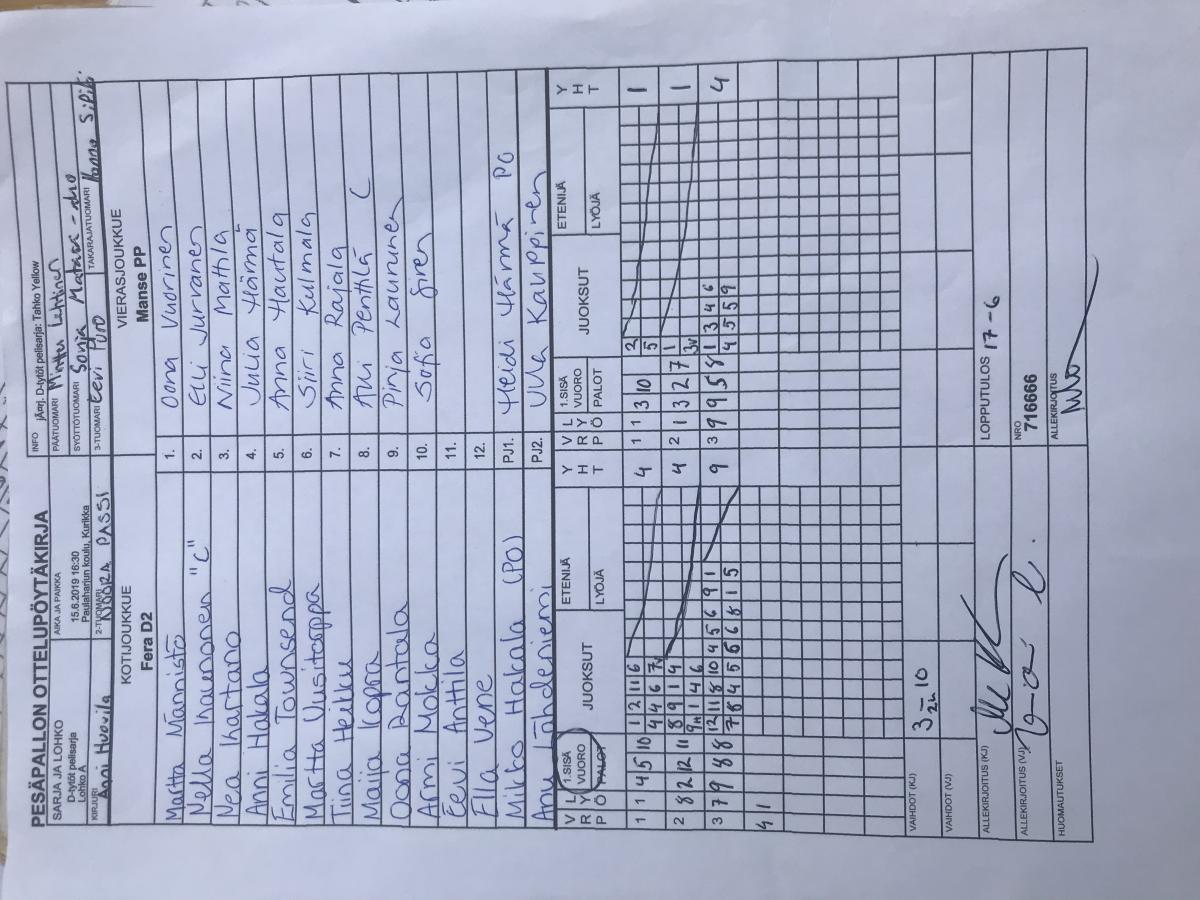 PESÄPALLON OTTELUPÖYTÄKIRJA
SARJA JA LOHKO
D-tytöt pelisarja
Lohko A
AIKA JA PAIKKA
15.6.2019 16:30
Paulaharjun koulu, Kurikka
INFO jÄorj. D-tytöt pelisarja: Tahko Yellow
PÄÄTUOMARI Minttu Lehtinen
SYÖTTÖTUOMARI Sonja Matara-aho
KIRJURI Anni Huovila
2-TUOMARI NOORA PASSI
3-TUOMARI Eevi Puro
TAKARAJATUOMARI Hanna S
KOTIJOUKKUE
Fera D2
VIERASJOUKKUE
Manse PP
Matta Männistö 1. Oona Vuorinen
Nella Kaunonen "C" 2. Elli Jurvanen
Nea Kartano 3. Niina Mattila
Anni Hakala 4. Julia Härmä
Emilia Townsend 5. Anna Hautala
Martta Uusitorppa 6. Siiri Kulmala
Tiina Heikku 7. Anna Rajala
Maija Kopra 8. Anni Penttilä C
Oona Rantala 9. Pinja Laununen
Armi Mokka 10. Sofia Siren
Eevi Anttila 11.
Ella Vene 12.
Mikko Hakala (PO) PJ1. Heidi Härmä PO
Anu Lähdeniemi PJ2. Ulla Kauppinen
V R P L Y Ö 1.SISÄ VUORO PALOT JUOKSUT ETENIJÄ LYÖJÄ Y H T V R P L Y Ö 1.SISÄ VUORO PALOT JUOKSUT ETENIJÄ LYÖJÄ Y H T
1 1 4 5 10 1 2 11 6 4 1 1 3 10 2 1
4 4 6 7v 5
2 8 2 12 11 8 9 1 4 4 2 1 3 2 7 1 1
9n 1 4 6 3v
3 7 9 8 8 12 11 8 10 4 5 6 9 1 9 3 9 9 5 8 1 3 4 6 4
7 8 4 5 6 6 8 1 5 4 5 5 9
4 1
VAIHDOT (KJ) 3-10
VAIHDOT (VJ)
ALLEKIRJOITUS (KJ)
LOPPUTULOS 17-6
ALLEKIRJOITUS (VJ)
NRO
716666
HUOMAUTUKSET
ALLEKIRJOITUS